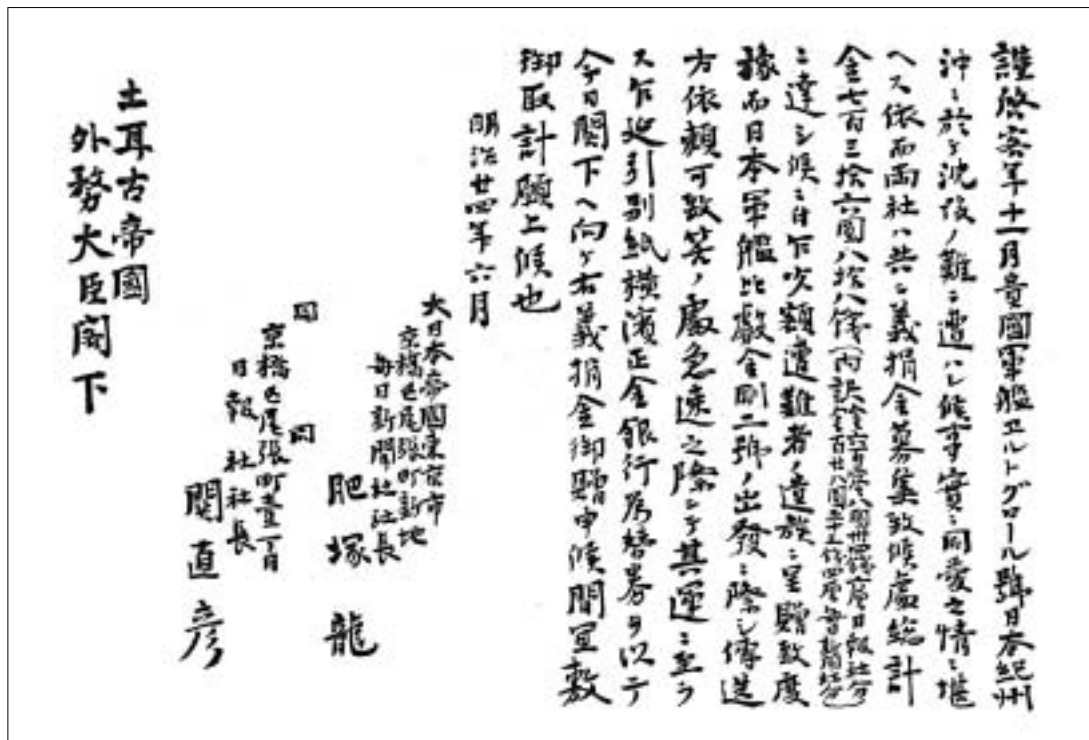 謹啓客年十一月貴國軍艦エルトグロール號日本紀州
沖ニ於テ沈後ノ難ニ遭ハレ候事實ニ同愛之情ニ堪
ヘス依而両社ハ共ニ義捐金募集致候處總計
金七百三拾六圓八拾八錢
ニ達シ候ニ付乍吹類遭難者ノ遺族ニ呈贈致度
豫而日本軍艦比叡金剛二號ノ出發ニ際シ傳送
方依頼可致筈ノ處急速之際シテ其運ニ至ラ
ス乍延引別紙横濱正金銀行為替券ヲ以テ
今日閣下ヘ向ケ右義捐金御贈申候間宜敷
御取計願上候也
明治廿四年六月
大日本帝國東京市
京橋区尾張町新地
毎日新聞社社長
肥塚龍
同 同
京橋区尾張町壹丁目
日報社社長
関直彦
土耳古帝國
外務大臣閣下